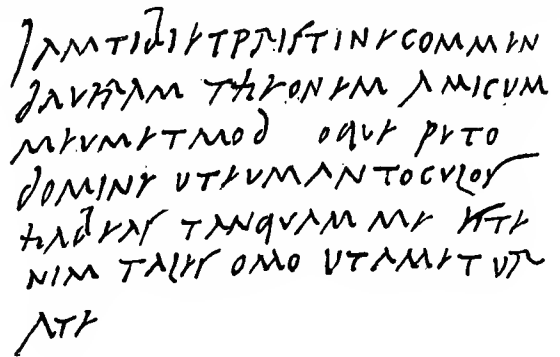 iam tibi et pristine commen
daveram theonem amicum
meum et mod oque peto
domine ut eum ant oculos
habeas tanquam me est e
nim tales omo ut ametur
a te